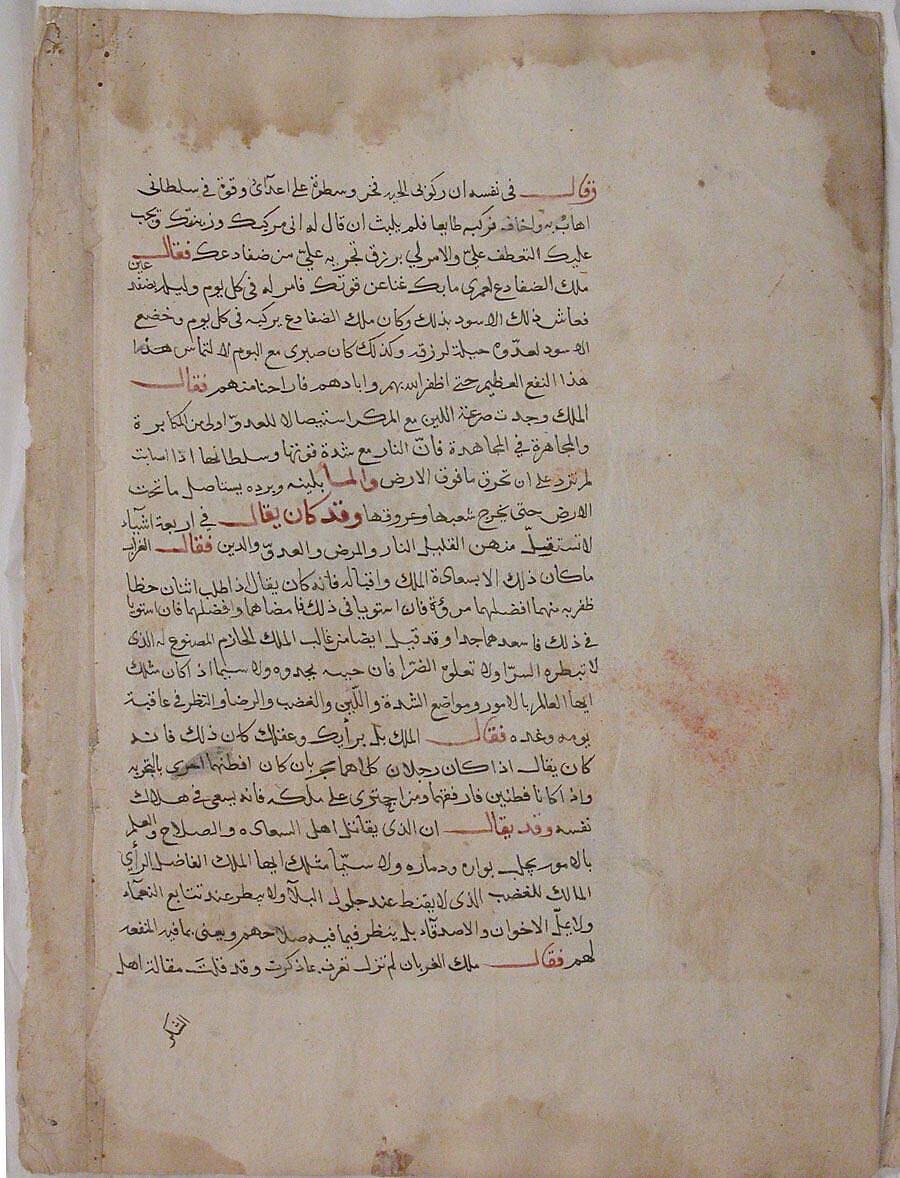 وقال في نفسه ان ركوبى فخر وسطوة على اعدآئ وقوة في سلطانى
اهاب به واخافه فركبه طايعا فلم يلبث ان قال له انى مركبك وزينتك ويجب
عليك التعطف علىّ والامر لي برزق تجريه علىّ من ضفادعك فقال
ملك الضفادع لعمرى ما بك غنا عن قوتك فامر له في كل يوم وليله بضفد
عين
فعاش ذلك الاسود بذلك وكان ملك الضفادع يركبه في كل يوم وخضع
الاسود لعدوه حيلة لرزقه وكذلك كان صبرى مع البوم لالتماس هذا
هذا النفع العظيم حتى اظفر الله بهم وابادهم فاراحنا منهم فقال
الملك وجدت صرعة اللين مع المكر استيصالا للعدوّ اولى من المكابرة
والمجاهرة في المجاهدة فانّ النار مع شدة قوتها وسلطانها اذا اصابت
لم تزد على ان تحرق ما فوق الارض والمآ بلينه وبرده يستاصل ما تحت
الارض حتى يخرج شعبها وعروقها وقد كان يقال في اربعة اشيآء
لا تستقلّ منهن القليل النار والمرض والعدوّ والدين فقال الغراب
ما كان ذلك الا بسعادة الملك واقباله فانه كان يقال اذ اطلب اثنان حظا
ظفر به منهما افضلهما مروّة فان استويا في ذلك فامضاهما وافضلهما فان استويا
في ذلك فاسعدهما جدا وقد قيل ايضا من غالب الملك الحازم المصنوع له الذى
لا تبطره السرّا ولا تعلوه الضرّا فان حينه يجدوه ولا سيما اذ اكان مثلك
ايها العالم بالامور ومواضع الشدة واللين والغضب والرضا والنظر في عاقبة
يومه وغده فقال الملك بل برأيك وعقلك كان ذلك فانه
كان يقال اذا كان رجلان كلاهما مجربان كان افطنهما احرى بالتجربه
واذ اكانا فطنين فارفقهما ومن اجترى على ملكه فانه يسعى في هلاك
نفسه وقد يقال ان الذى يقاتل اهل السعاده والصلاح والعلم
بالامور يعجل بواره ودماره ولا سيّما مثلك ايها الملك الفاضل الرأي
المالك للغضب الذى لا يقنط عند حلول البلآ ولا يبطر عند تتابع النعمآء
ولا يملّ الاخوان والاصدقآء بل ينظر فيما فيه صلاحهم ويعنى بما فيه المنفعه
لهم فقال ملك الغربان لم تزل تعرف ما ذكرت وقد قلت مقالة اهل
الشكر